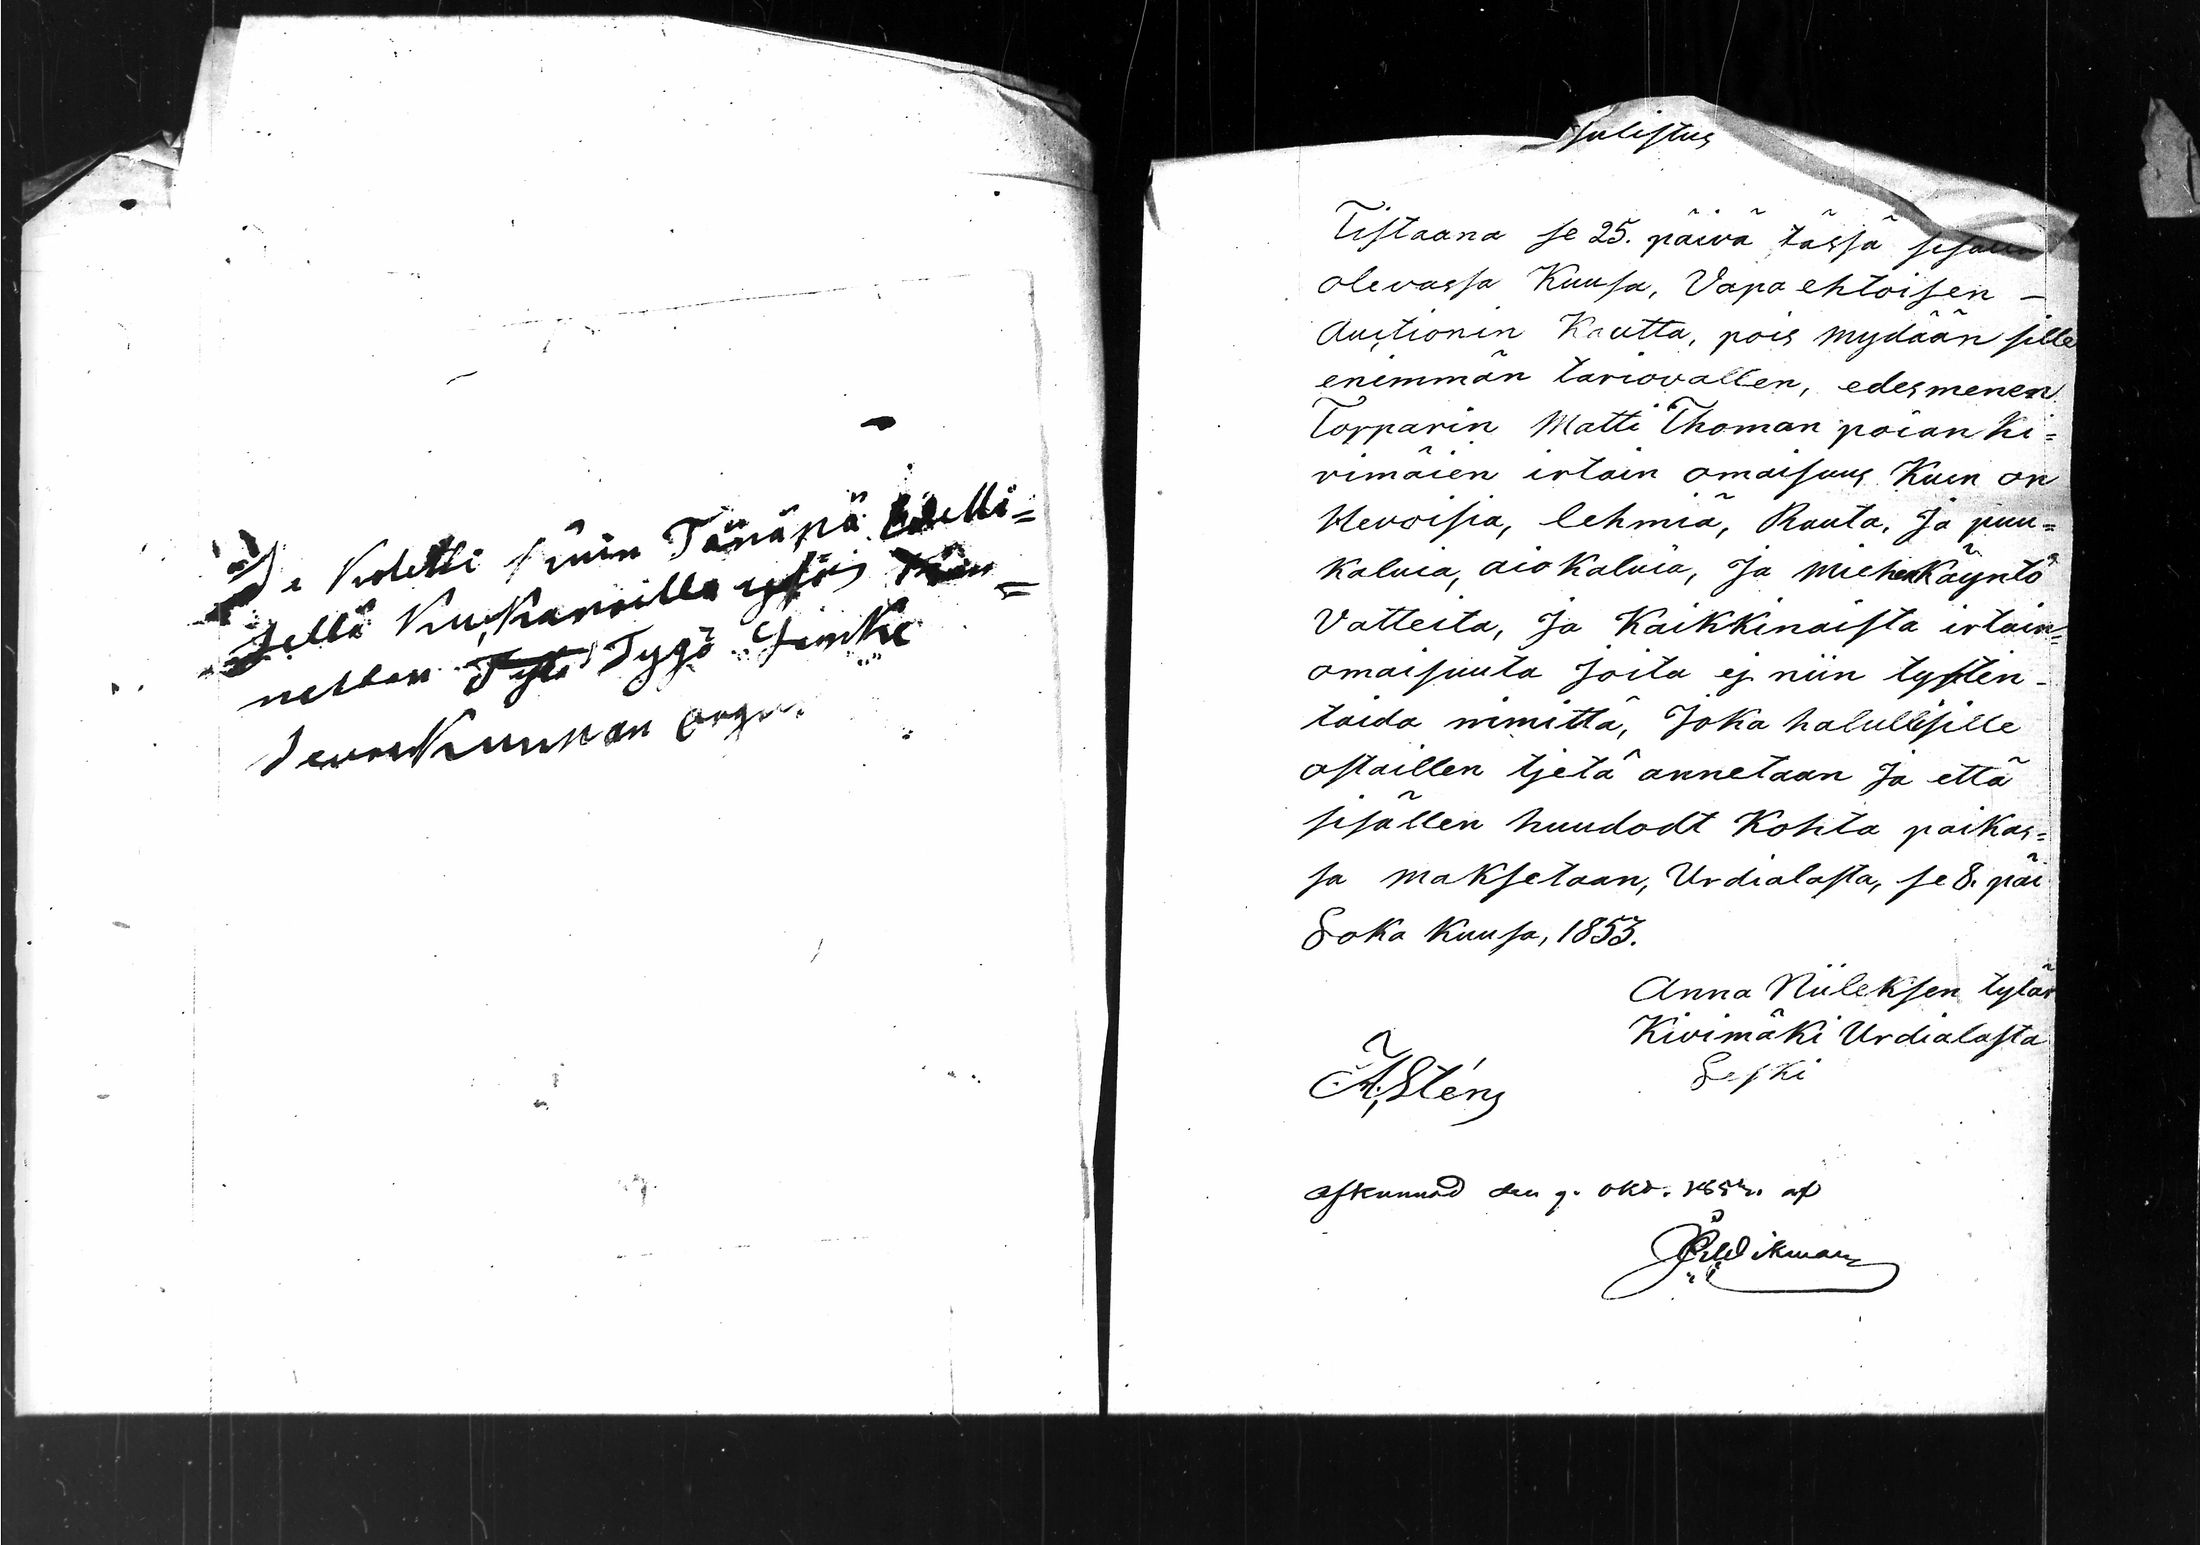 Kolekti kuin Tänäpä
sellä Kuckaroilla ylös
nettan Tygö
SeuraKunnan
Julistus
Tistaana se 25. päivä tässä sisällä
olevassa Kuusa, Vapa ehtoisen –
Auctionin Kautta, pois mydään sille
enimmän tariovallen, edesmenen
Torparin Matti Thoman poian Ki=
vimäien irtain omaisuus Kuin on
Hevoisia, lehmiä, Rauta, Ja puu=
Kaluia, aioKaluia, Ja miehenKäyntö
Vatteita, Ja Kaikkinaista irtain=
omaisuuta Joita ej niin tysten-
taida nimittä, JoKa halullisille
ostaillen tjetä annetaan Ja että
sisällen huudodt Kohta paikas=
sa maksetaan, Urdialasta, se 8. päi
LoKa Kuusa, 1853.
Anna Niileksen tytär
Kivimäki Urdialasta
Leski
A. Stén
Afkunnad den 9. Okt. 1853. af
Wikman